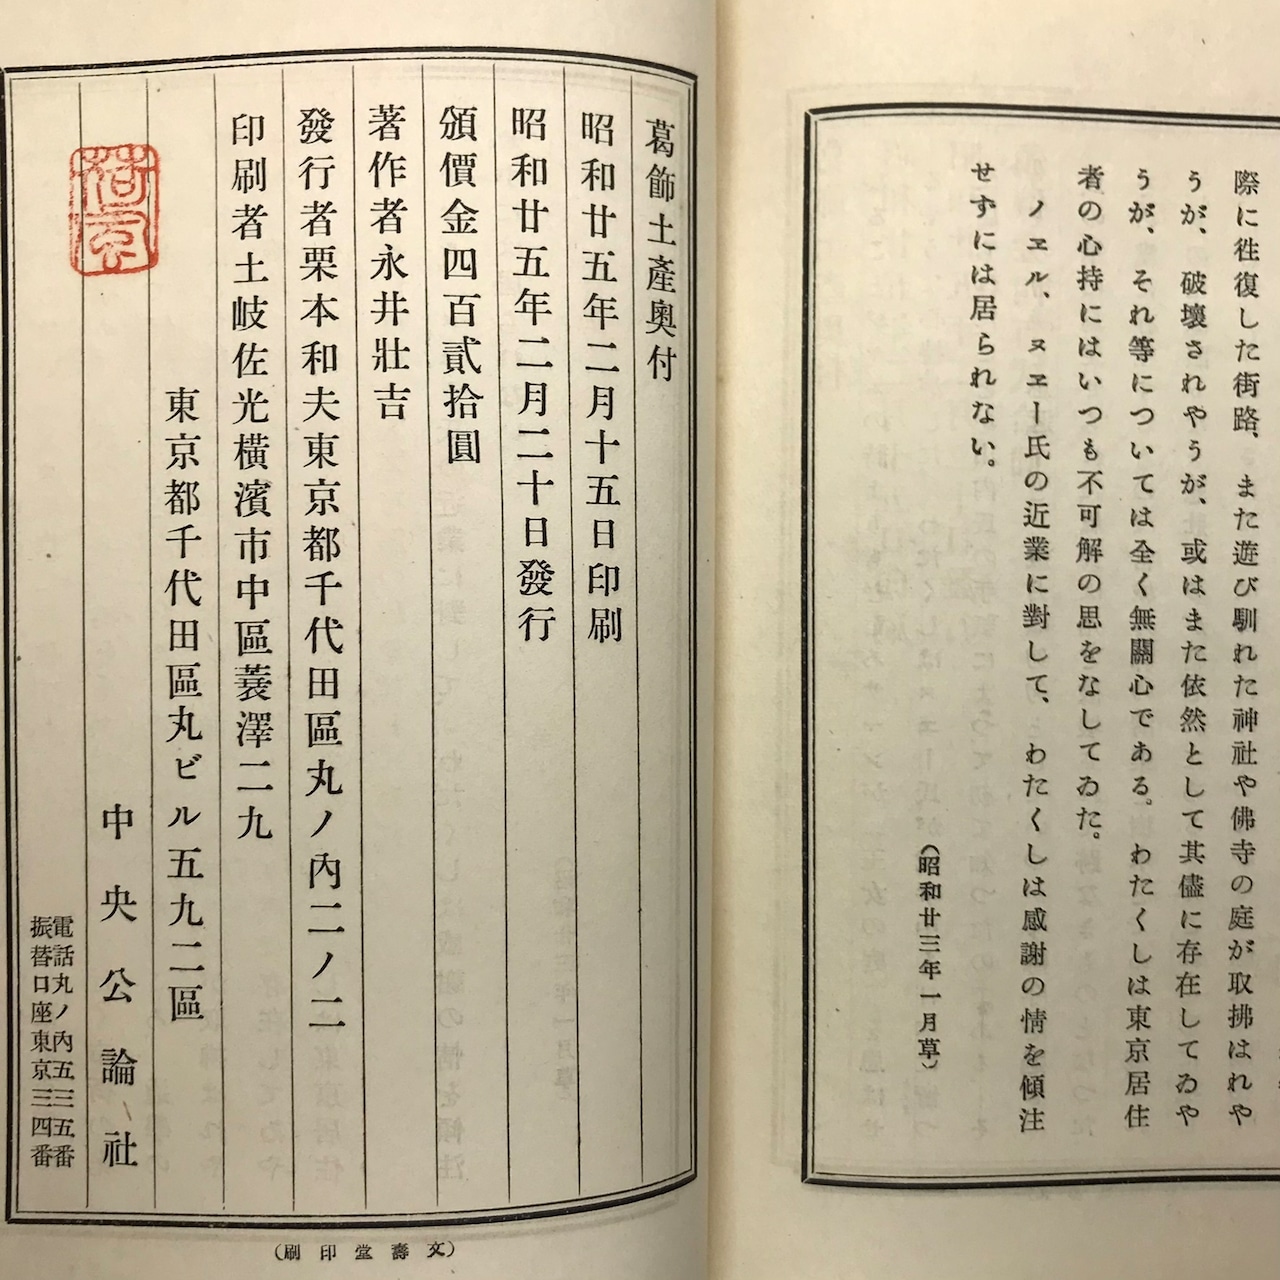 際に徃復した街路、また遊び馴れた神社や佛寺の庭が取拂はれや
うが、破壞されやうが、或はまた依然として其儘に存在してゐや
うが、それ等については全く無關心である。わたくしは東京居住
者の心持にはいつも不可解の思をなしてゐた。
ノヱル、ヌヱー氏の近業に對して、わたくしは感謝の情を傾注
せずには居られない。
(昭和廿三年一月草)
葛飾土產奧付
昭和廿五年二月十五日印刷
昭和廿五年二月二十日發行
頒價金四百貳拾圓
著作者永井壯吉
發行者栗本和夫東京都千代田區丸ノ內二ノ二
印刷者土岐佐光橫濱市中區蓑澤二九
東京都千代田區丸ビル五九二區
中央公論社
電話丸ノ內五三五番
振替口座東京三四番
荷風
(文壽堂印刷)